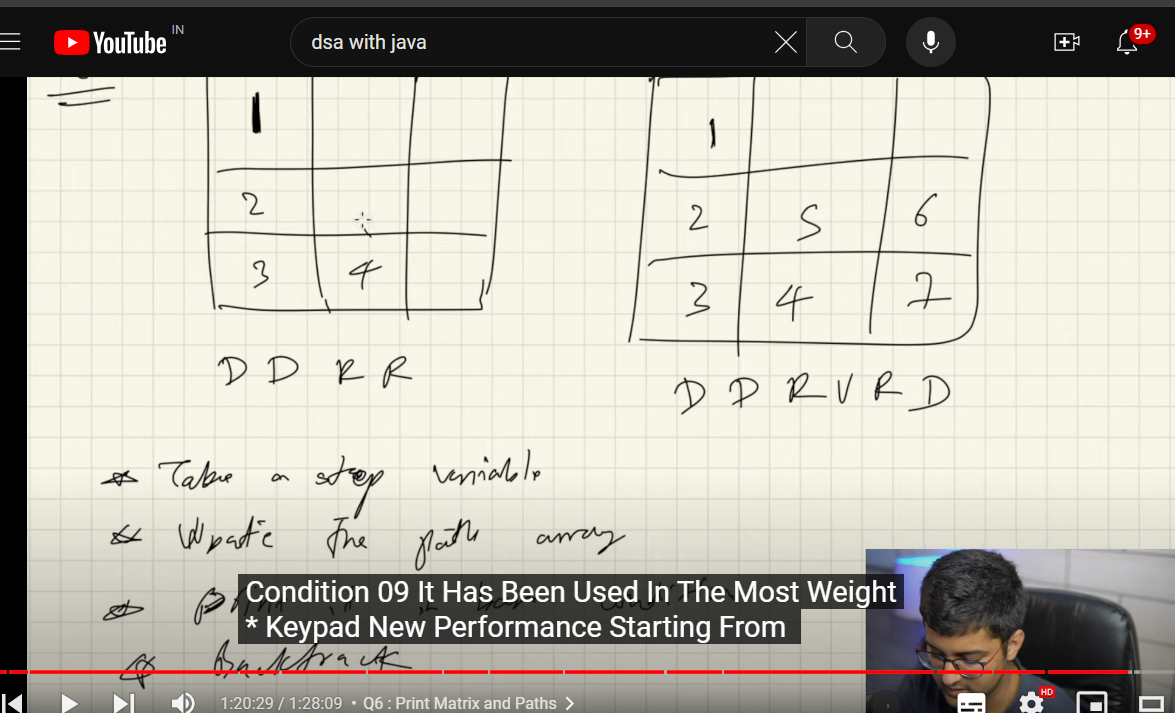 YouTube IN
dsa with java
9+
1
2
3 4
D D R R
1
2 5 6
3 4 7
D D R U R D
* Take a step variable
* Update the path array
Condition 09 It Has Been Used In The Most Weight
* Keypad New Performance Starting From
* Backtrack
1:20:29 / 1:28:09 • Q6 : Print Matrix and Paths
HD